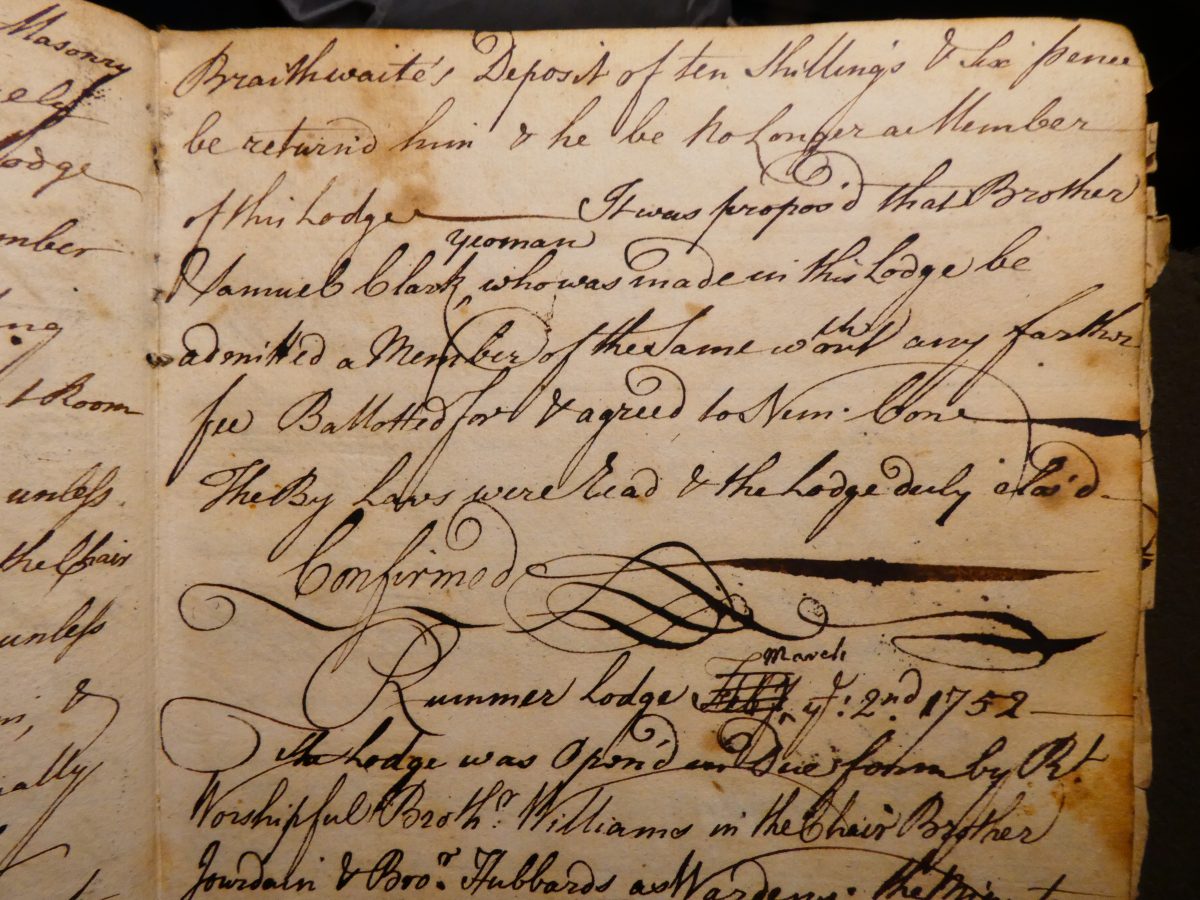 Masonry
ely
Lodge
mber
ing
t Room
unless
the Chair
unless
m, &
ally
Braithwaite's Deposit of ten Shillings & Six pence
be return'd him & he be No Longer a Member
of this Lodge It was propos'd that Brother
yeoman
Samuel Clark who was made in this Lodge be
admitted a Member of the Same without any farther
fee Ballotted for & agreed to Nem. Con
The By Laws were Read & the Lodge duly clos'd
Confirmed
March
Rummer Lodge ye: 2nd 1752
the Lodge was Open'd in Due form by Rt
Worshipful Brothr. Williams in the Chair Brother
Jourdain & Bror. Hubbards as Wardens. the